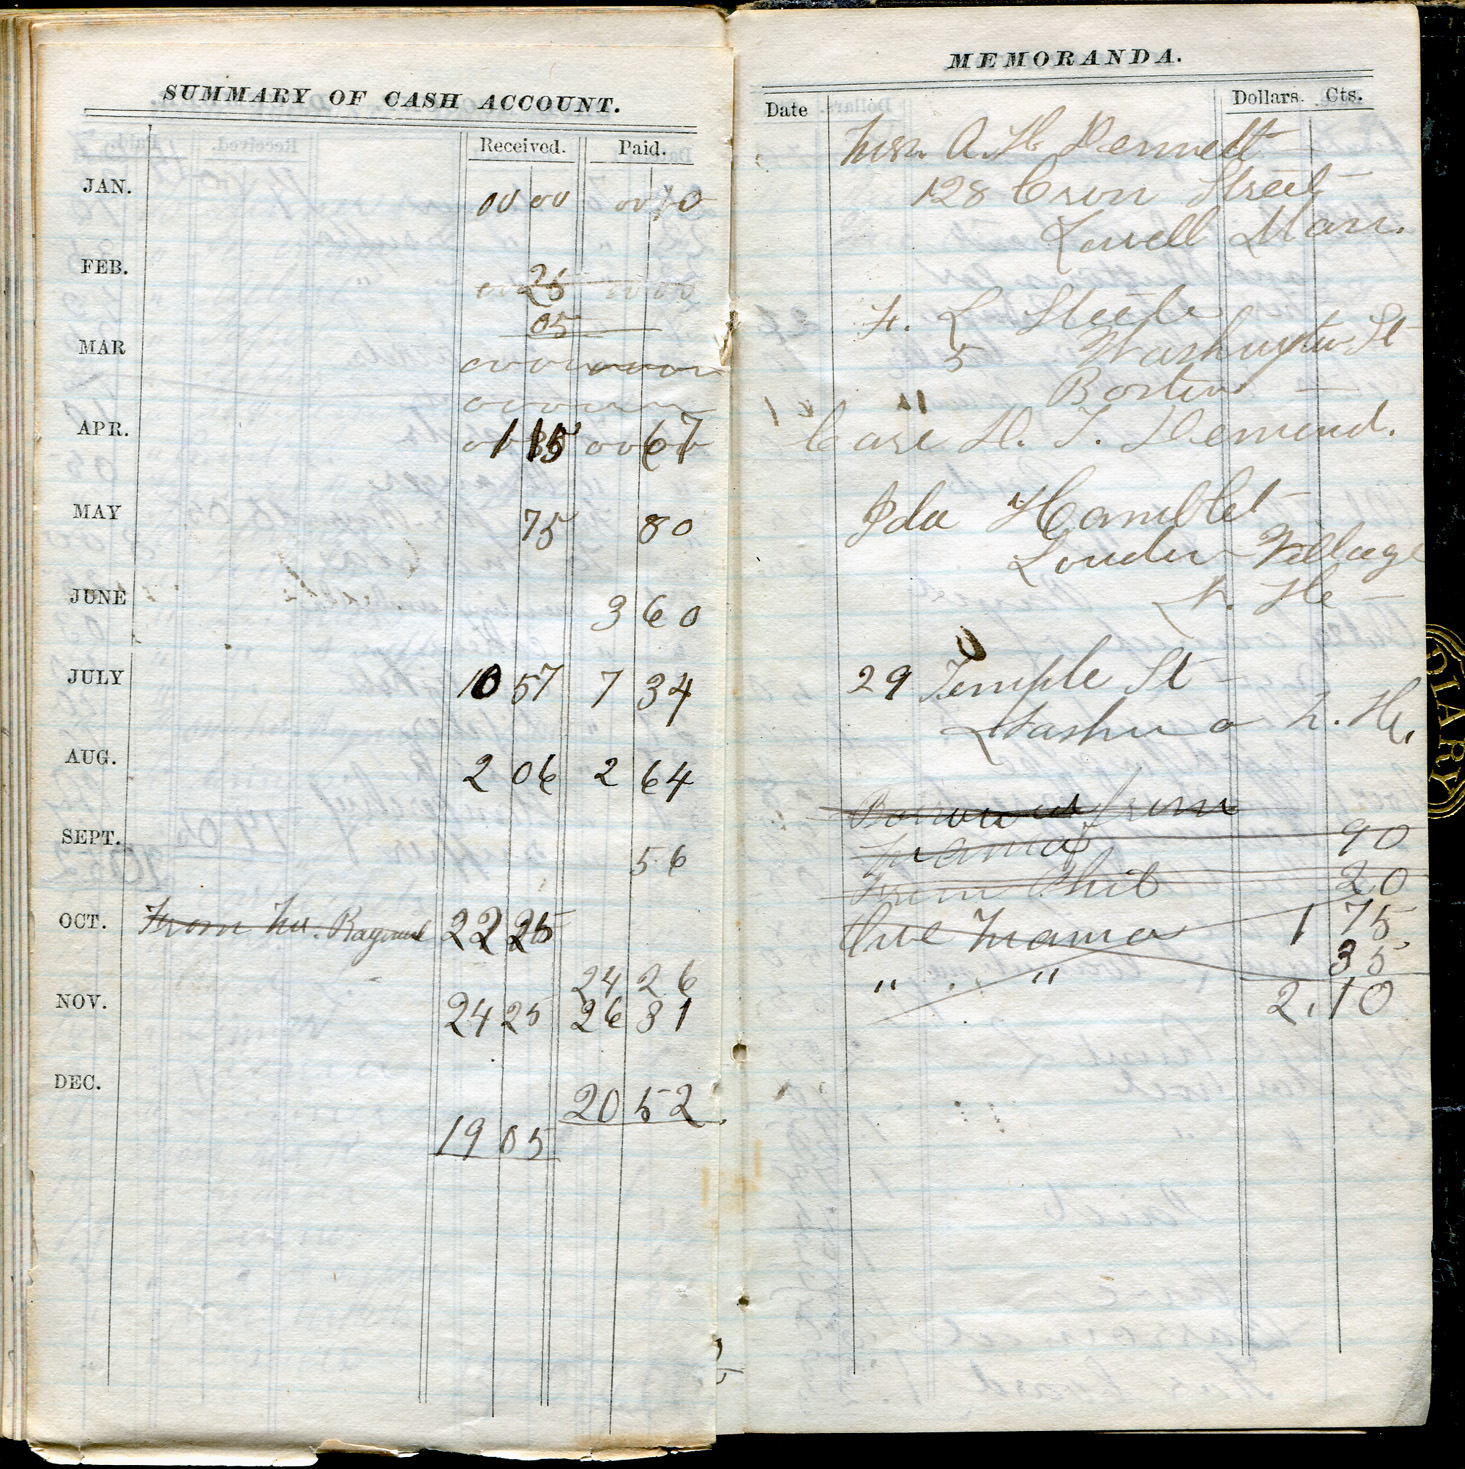 SUMMARY OF CASH ACCOUNT.
Received. Paid.
JAN. 00 00 00 10
FEB. 25
05
MAR
APR. 1 15 67
MAY 75 80
JUNE 3 60
JULY 10 57 7 34
AUG. 2 06 2 64
SEPT. 56
OCT. From Mr. Raymond 22 25
24 26
NOV. 24 25 26 31
DEC.
20 52
19 05
MEMORANDA.
Date Dollars. Cts.
Miss A. H.
128 Street
Lowell Mass.
F. L. Steele
5 Washington St
Boston
Care H. T. Demond.
Ida Hamblet
Loudon Village
N. H
29 Temple St
Nashua N. H.
Borrowed from
Mama 90
From Phil 20
Owe Mama 1 75
" " " 35
2.10
DIARY